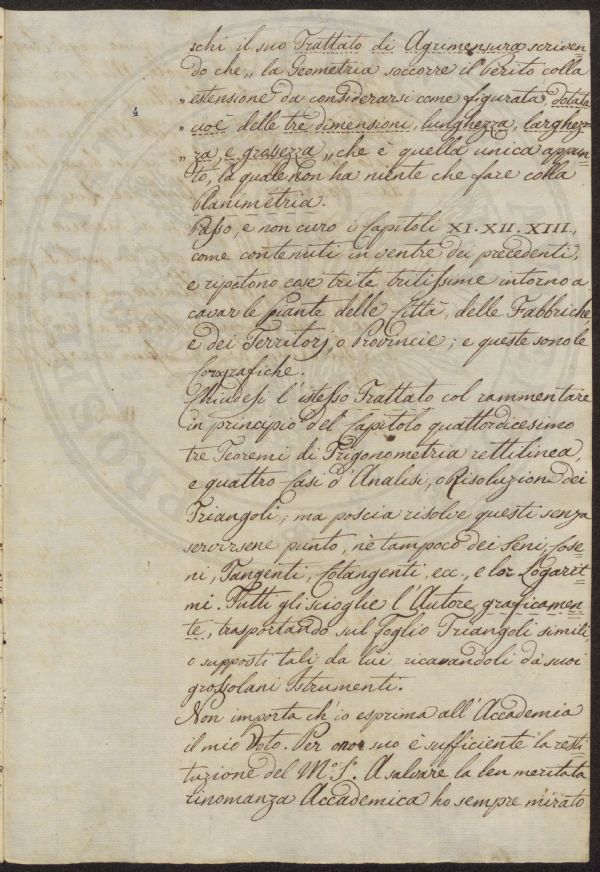 schi il suo Trattato di Agrimensura scriven
do che „ la Geometria soccorre il Perito colla
„ estensione da considerarsi come figurata, dotata
„ cioè delle tre dimensioni, lunghezza, larghez=
„ za, e grossezza „ che è quella unica appun
to, la quale non ha niente che fare colla
Planimetria.
Passo, e non curo i Capitoli XI. XII. XIII.,
come contenuti in ventre dei precedenti,
e ripetono cose trite tritissime intorno a
cavar le Piante delle Città, delle Fabbriche
e dei Territorj, o Provincie; e queste sono le
Corografiche.
Chiudesi l'istesso Trattato col rammentare
in principio del Capitolo quattordicesimo
tre Teoremi di Trigonometria rettilinea,
e quattro Casi d'Analisi, o Risoluzione dei
Triangoli; ma poscia risolve questi senza
servirsene punto, nè tampoco dei Seni, Cose
ni, Tangenti, Cotangenti, ecc., e lor Logarit
mi. Tutti gli scioglie l'Autore graficamen
te, trasportando sul Foglio Triangoli simili
o supposti tali da lui ricavandoli da' suoi
grossolani Istrumenti.
Non importa ch'io esprima all'Accademia
il mio Voto. Per onor suo è sufficiente la resti
tuzione del M.º S. A salvare la ben meritata
rinomanza Accademica ho sempre mirato